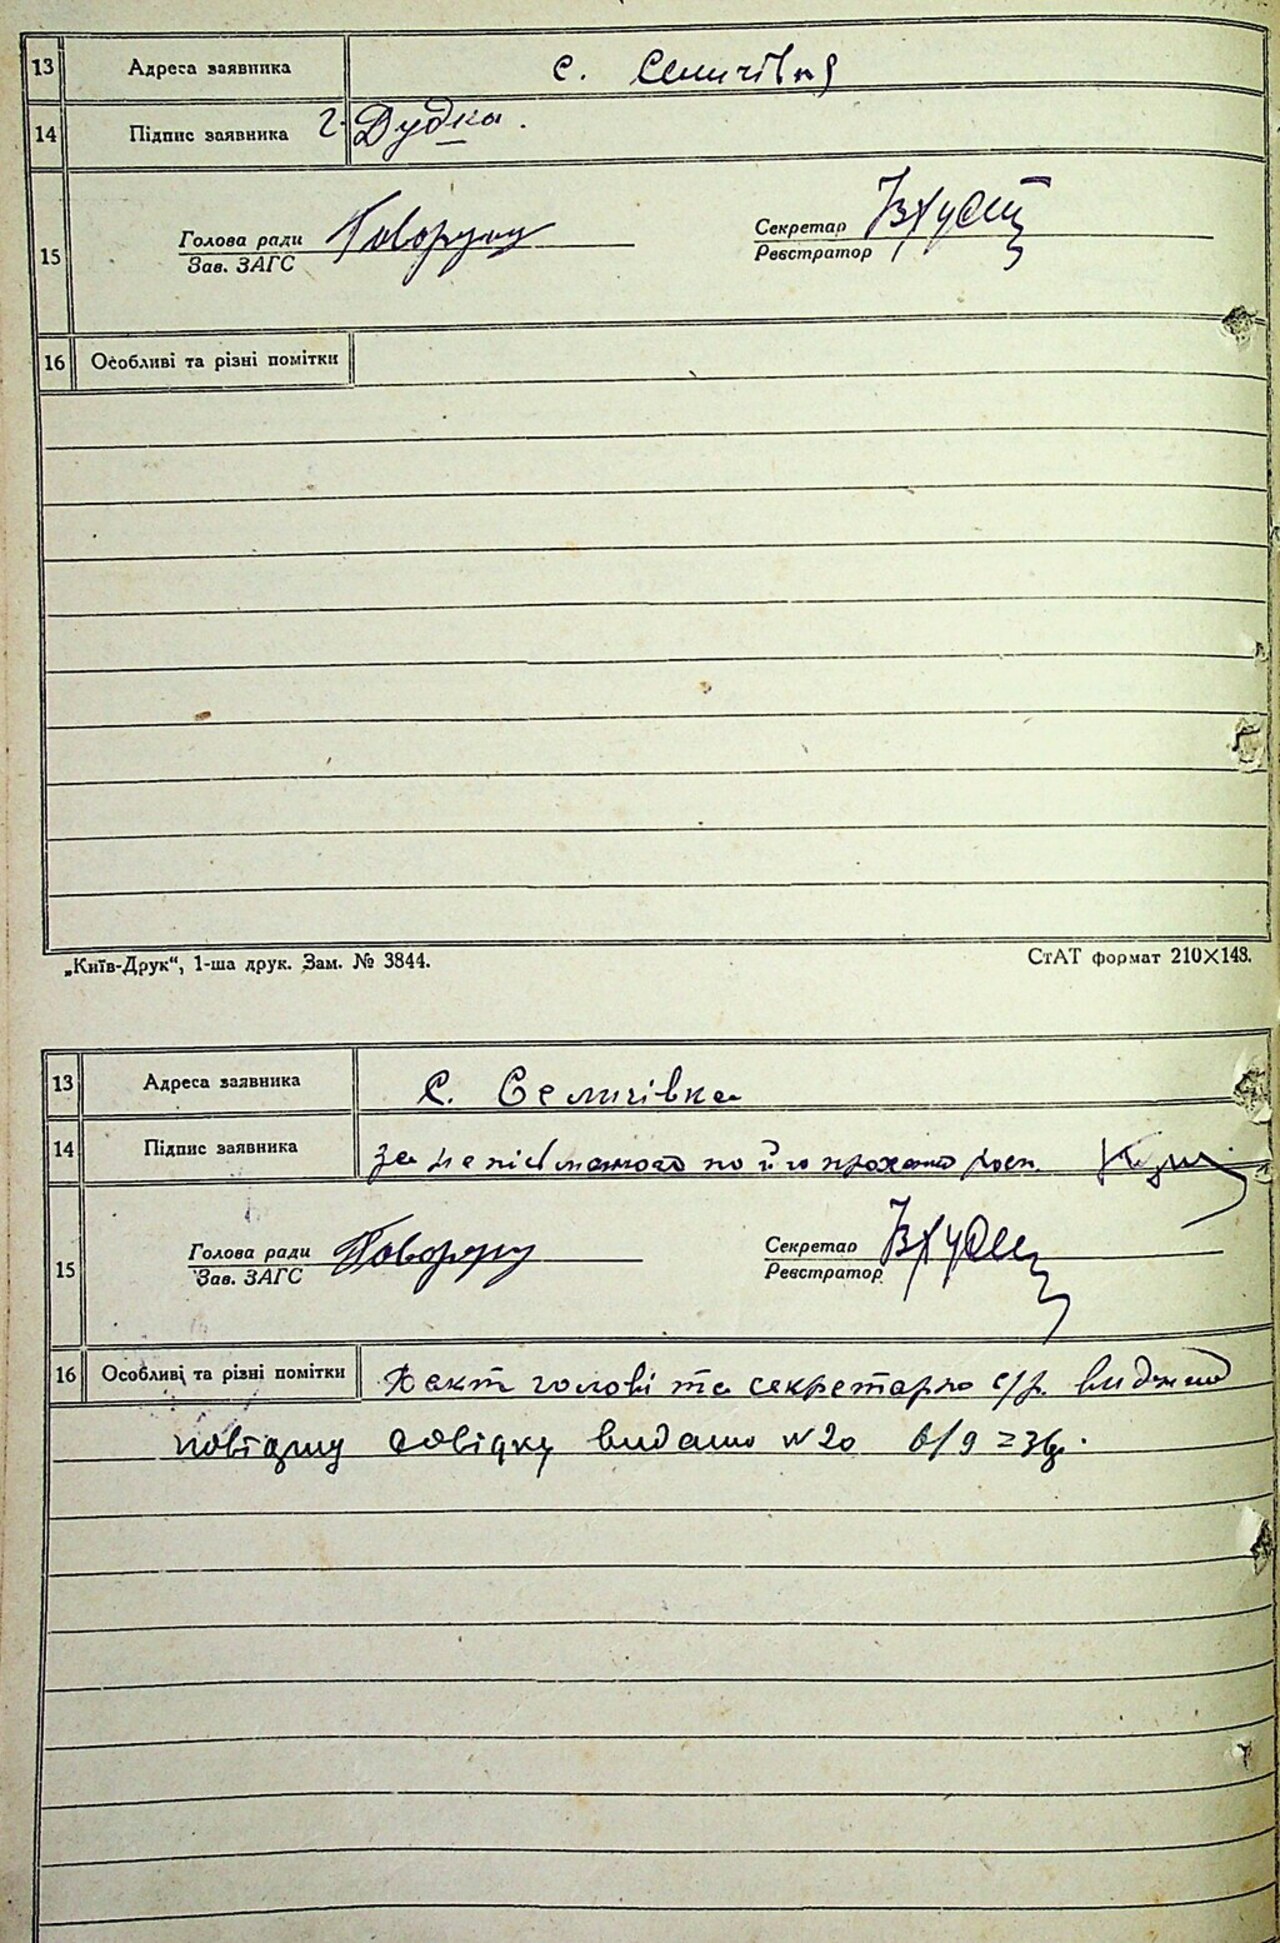 13 Адреса заявника с. Семичівка
14 Підпис заявника г. Дудка.
15 Голова ради Говорун Секретар
Зав. ЗАГС Реєстратор
16 Особливі та різні помітки
„Київ-Друк“, 1-ша друк. Зам. № 3844. СтАТ формат 210×148.
13 Адреса заявника с. Селичівка
14 Підпис заявника за неписьменного по його проханню
15 Голова ради Говорун Секретар
Зав. ЗАГС Реєстратор
16 Особливі та різні помітки голові та секретарю с/р.
довідку видано № 20 6/9